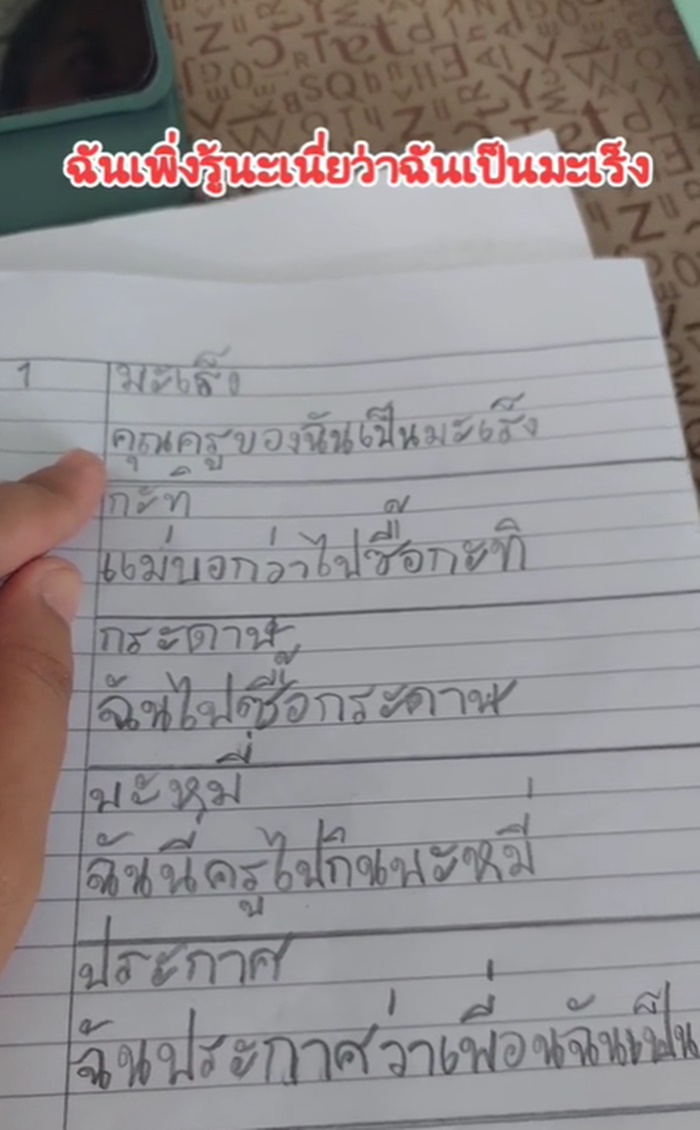 ฉันเพิ่งรู้นะเนี่ยว่าฉันเป็นมะเร็ง
1 มะเร็ง
คุณครูของฉันเป็นมะเร็ง
กะทิ
แม่บอกว่าไปซื้อกะทิ
กระดาษ
ฉันไปซื้อกระดาษ
บะหมี่
ฉันนี่ครูไปกินบะหมี่
ประกาศ
ฉันประกาศว่าเพื่อนฉันเป็น